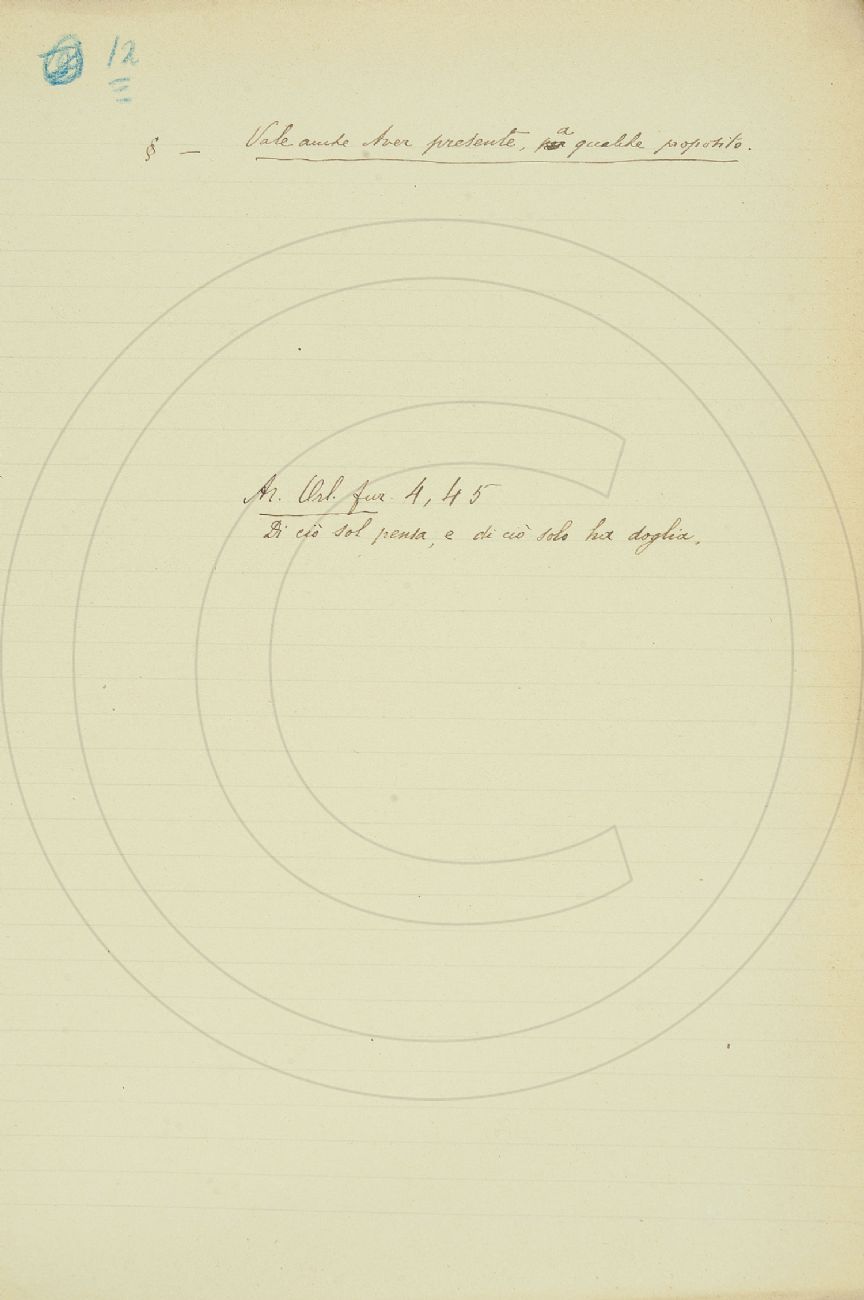 12
§ — Vale anche Aver presente, a qualche proposito.
Ar. Orl. fur. 4, 45
Di ciò sol pensa, e di ciò solo ha doglia.